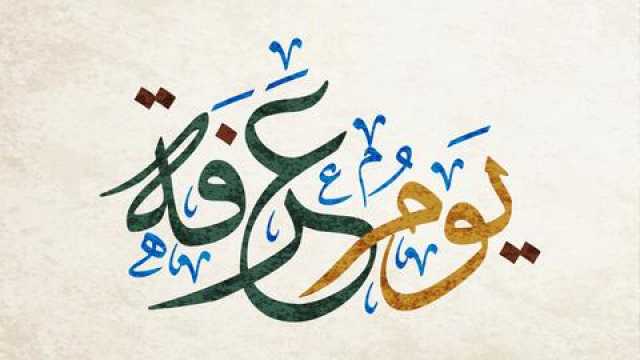 يَومُ عَرَفَة